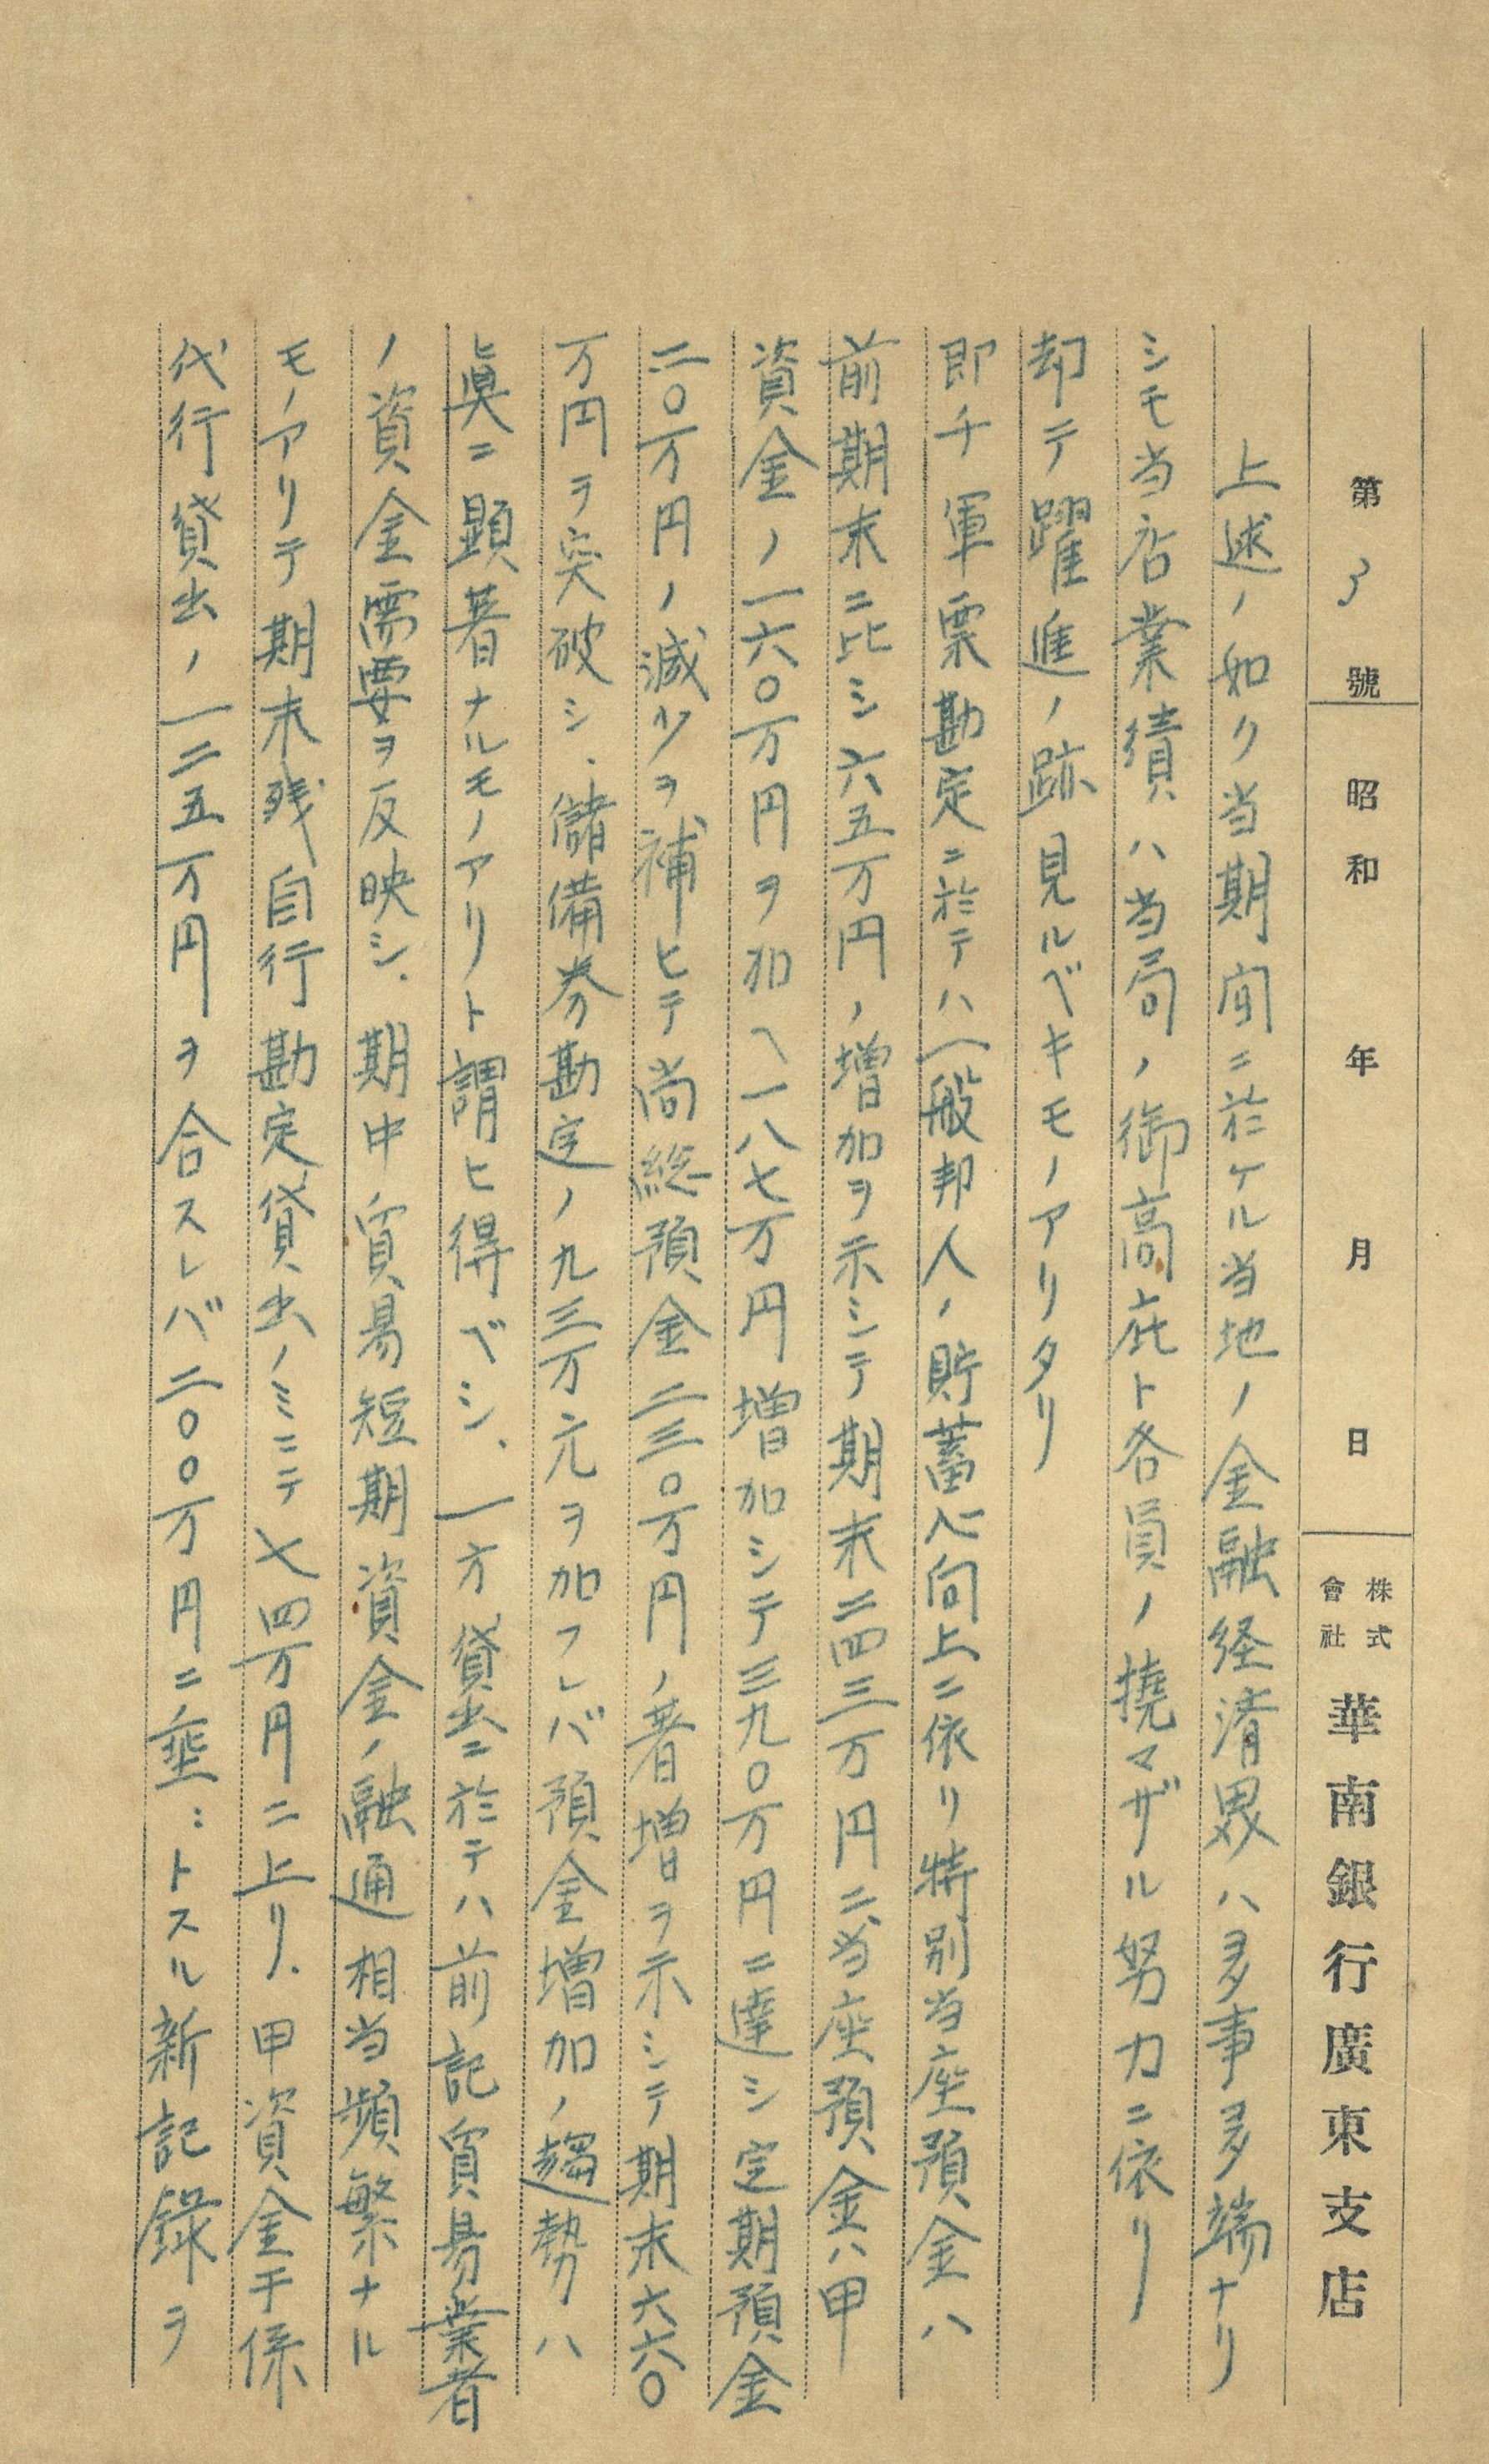 第 3 號 昭和 年 月 日 株式會社 華南銀行廣東支店
上述ノ如ク当期间ニ於ケル当地ノ金融経済界ハ多事多端ナリ
シモ当店業績ハ当局ノ御高庇ト各員ノ撓マザル努力ニ依リ
却テ躍進ノ跡見ルベキモノアリタリ
即チ軍票勘定ニ於テハ一般邦人ノ貯蓄心向上ニ依リ特別当座預金ハ
前期末ニ比シ六五万円ノ増加ヲ示シテ期末二四三万円ニ当座預金ハ甲
資金ノ一六〇万円ヲ加ヘ一八七万円増加シテ三九〇万円ニ達シ定期預金
二〇万円ノ減少ヲ補ヒテ尚総預金二三〇万円ノ著増ヲ示シテ期末六六〇
万円ヲ突破シ、儲備券勘定ノ九三万元ヲ加フレバ預金増加ノ趨勢ハ
眞ニ顕著ナルモノアリト謂ヒ得ベシ、一方貸出ニ於テハ前記貿易業者
ノ資金需要ヲ反映シ、期中貿易短期資金ノ融通相当頻繁ナル
モノアリテ期末残自行勘定貸出ノミニテ七四万円ニ上リ、甲資金干係
代行貸出ノ一二五万円ヲ合スレバ二〇〇万円ニ垂ントスル新記錄ヲ